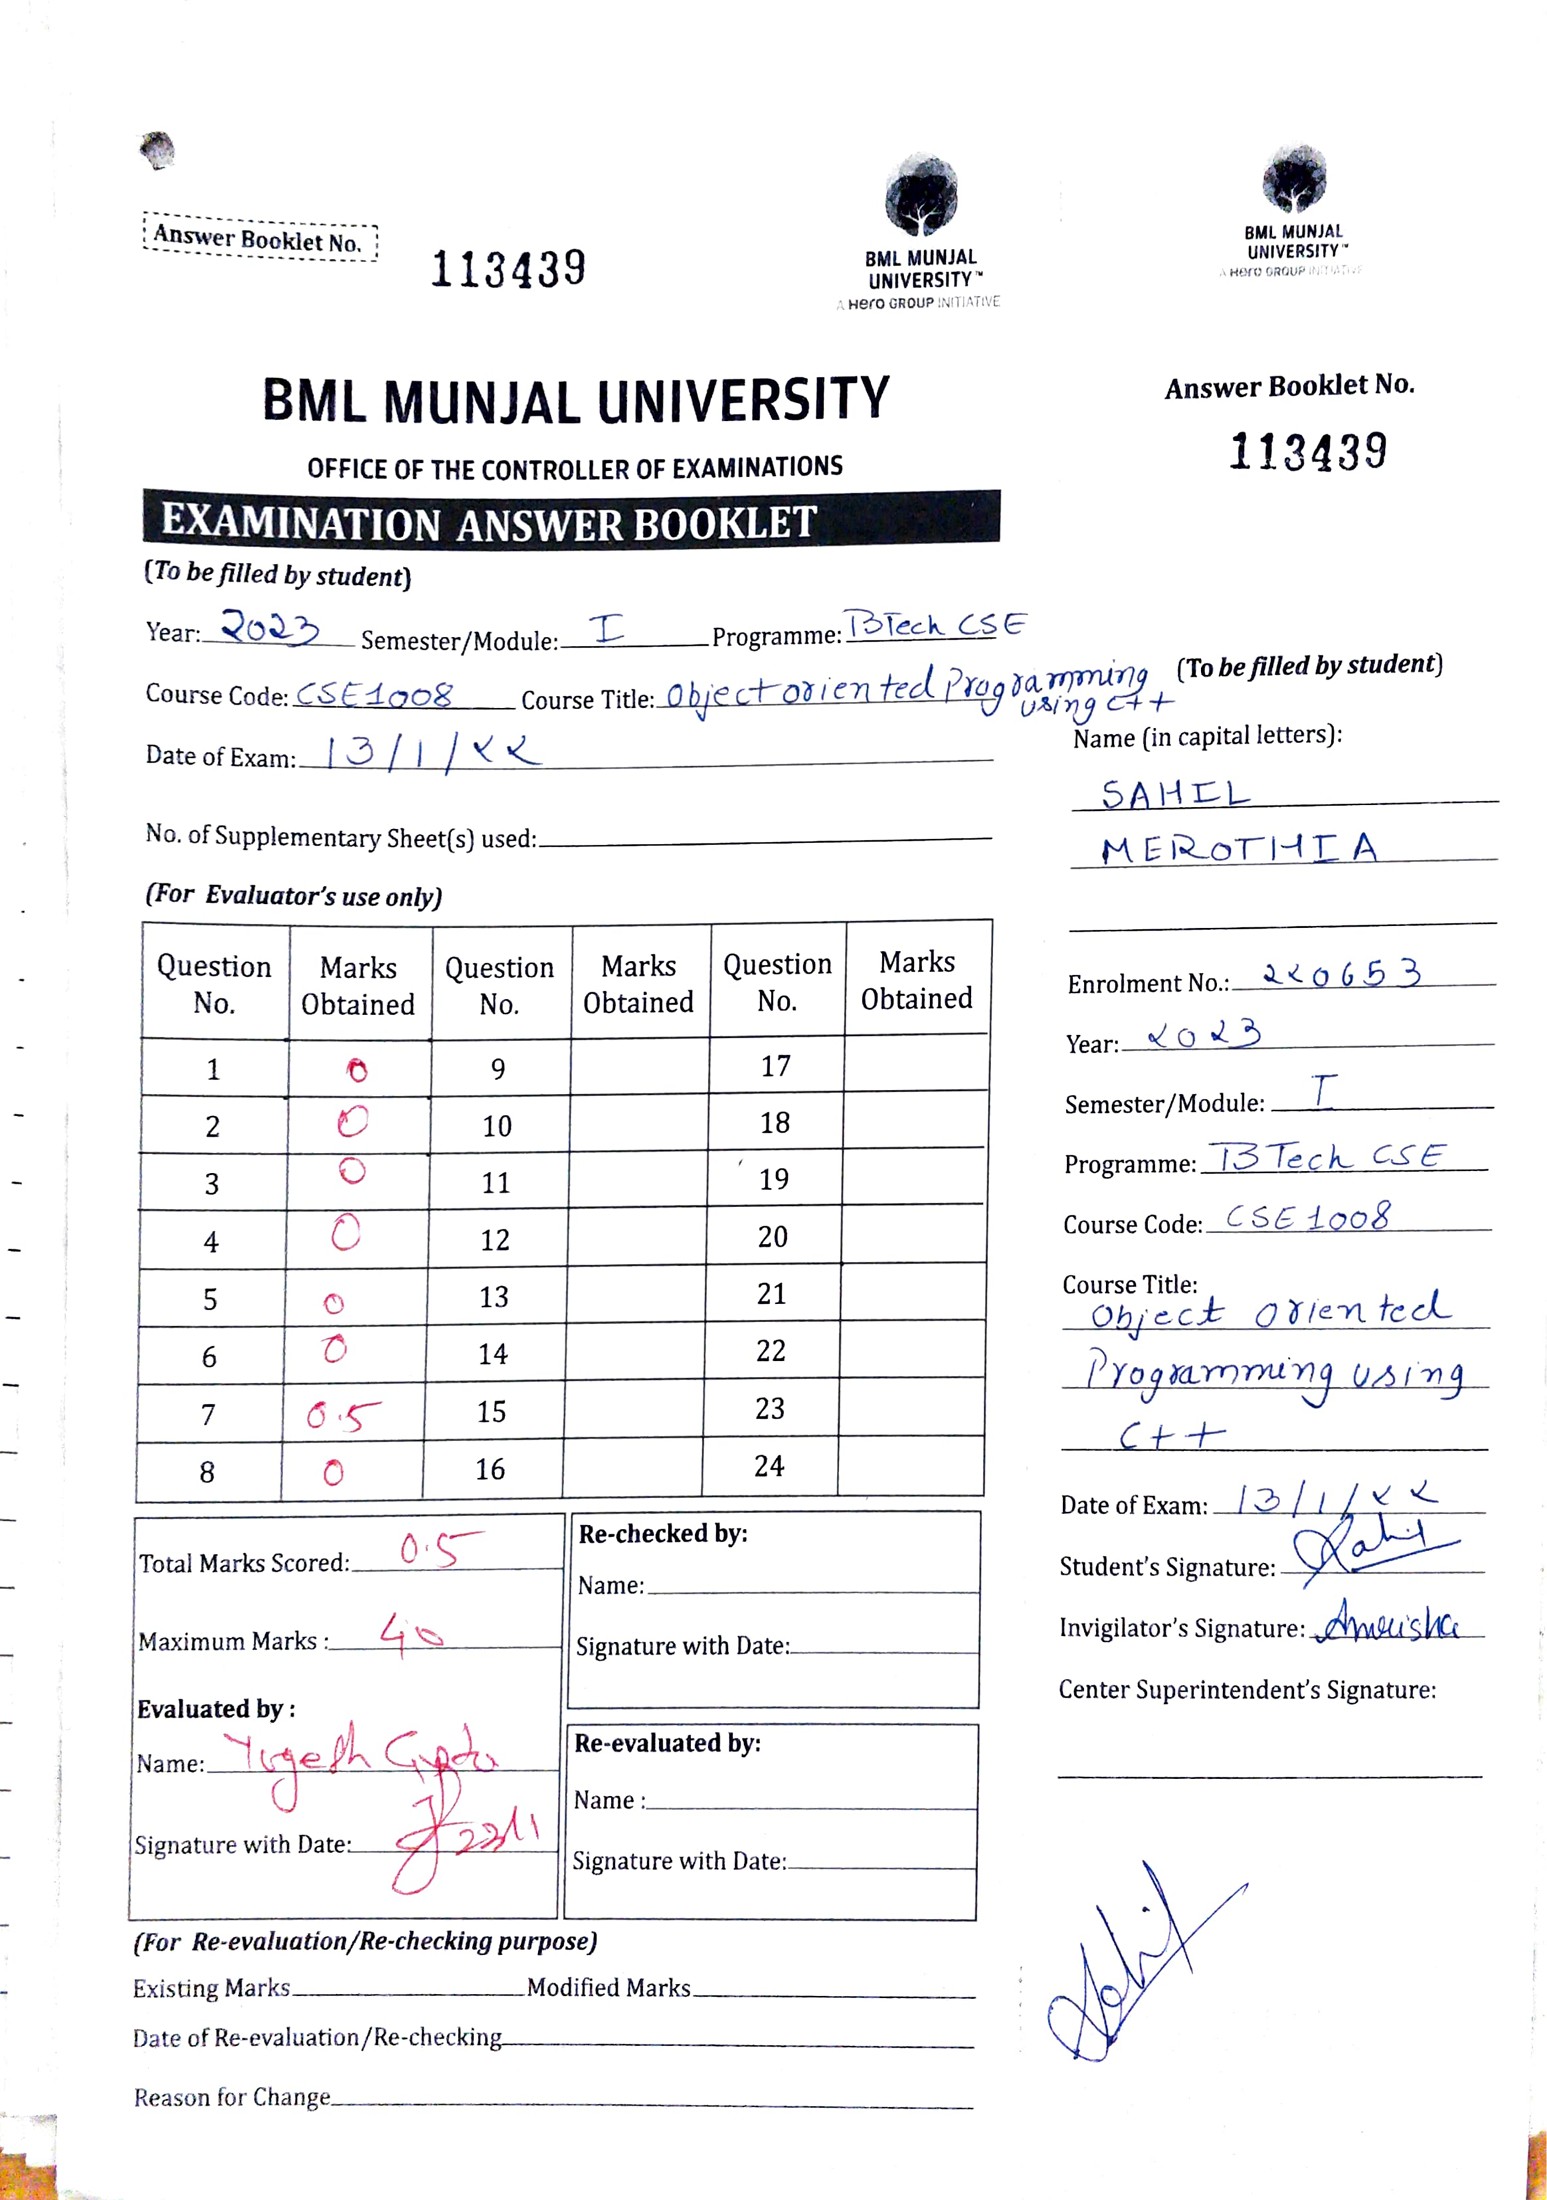 Answer Booklet No.
113439
BML MUNJAL
UNIVERSITY™
A Hero GROUP INITIATIVE
BML MUNJAL UNIVERSITY
OFFICE OF THE CONTROLLER OF EXAMINATIONS
EXAMINATION ANSWER BOOKLET
(To be filled by student)
Year: 2023 Semester/Module: I Programme: BTech CSE
Course Code: CSE1008 Course Title: Object oriented Programming
using C++
Date of Exam: 13/1/22
No. of Supplementary Sheet(s) used:
(For Evaluator's use only)
Question No. Marks Obtained Question No. Marks Obtained Question No. Marks Obtained
1 0 9 17
2 0 10 18
3 0 11 19
4 0 12 20
5 0 13 21
6 0 14 22
7 0.5 15 23
8 0 16 24
Total Marks Scored: 0.5
Maximum Marks : 40
Evaluated by :
Name: Yogesh Gupta
Signature with Date: 23/1
Re-checked by:
Name:
Signature with Date:
Re-evaluated by:
Name :
Signature with Date:
(For Re-evaluation/Re-checking purpose)
Existing Marks Modified Marks
Date of Re-evaluation/Re-checking
Reason for Change
BML MUNJAL
UNIVERSITY™
A Hero GROUP INITIATIVE
Answer Booklet No.
113439
(To be filled by student)
Name (in capital letters):
SAHIL
MEROTHIA
Enrolment No.: 220653
Year: 2023
Semester/Module: I
Programme: BTech CSE
Course Code: CSE1008
Course Title:
Object oriented
Programming using
C++
Date of Exam: 13/1/22
Student's Signature: Sahil
Invigilator's Signature:
Center Superintendent's Signature:
Sahil